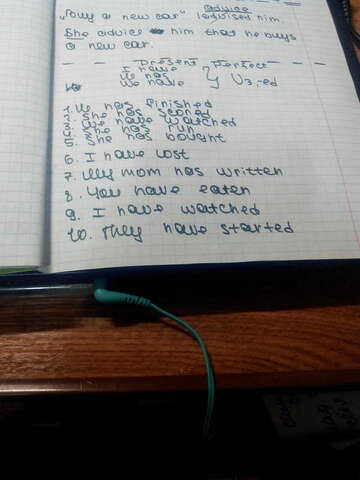 advice
"Buy a new car" I advised him.
She advice him that he buys
a new car.
Present Perfect
I have
He has
We have } V3, ed
1. He has finished
2. She has scored
3. We have watched
4. She has run
5. She has bought
6. I have lost
7. My mom has written
8. You have eaten
9. I have watched
10. They have started